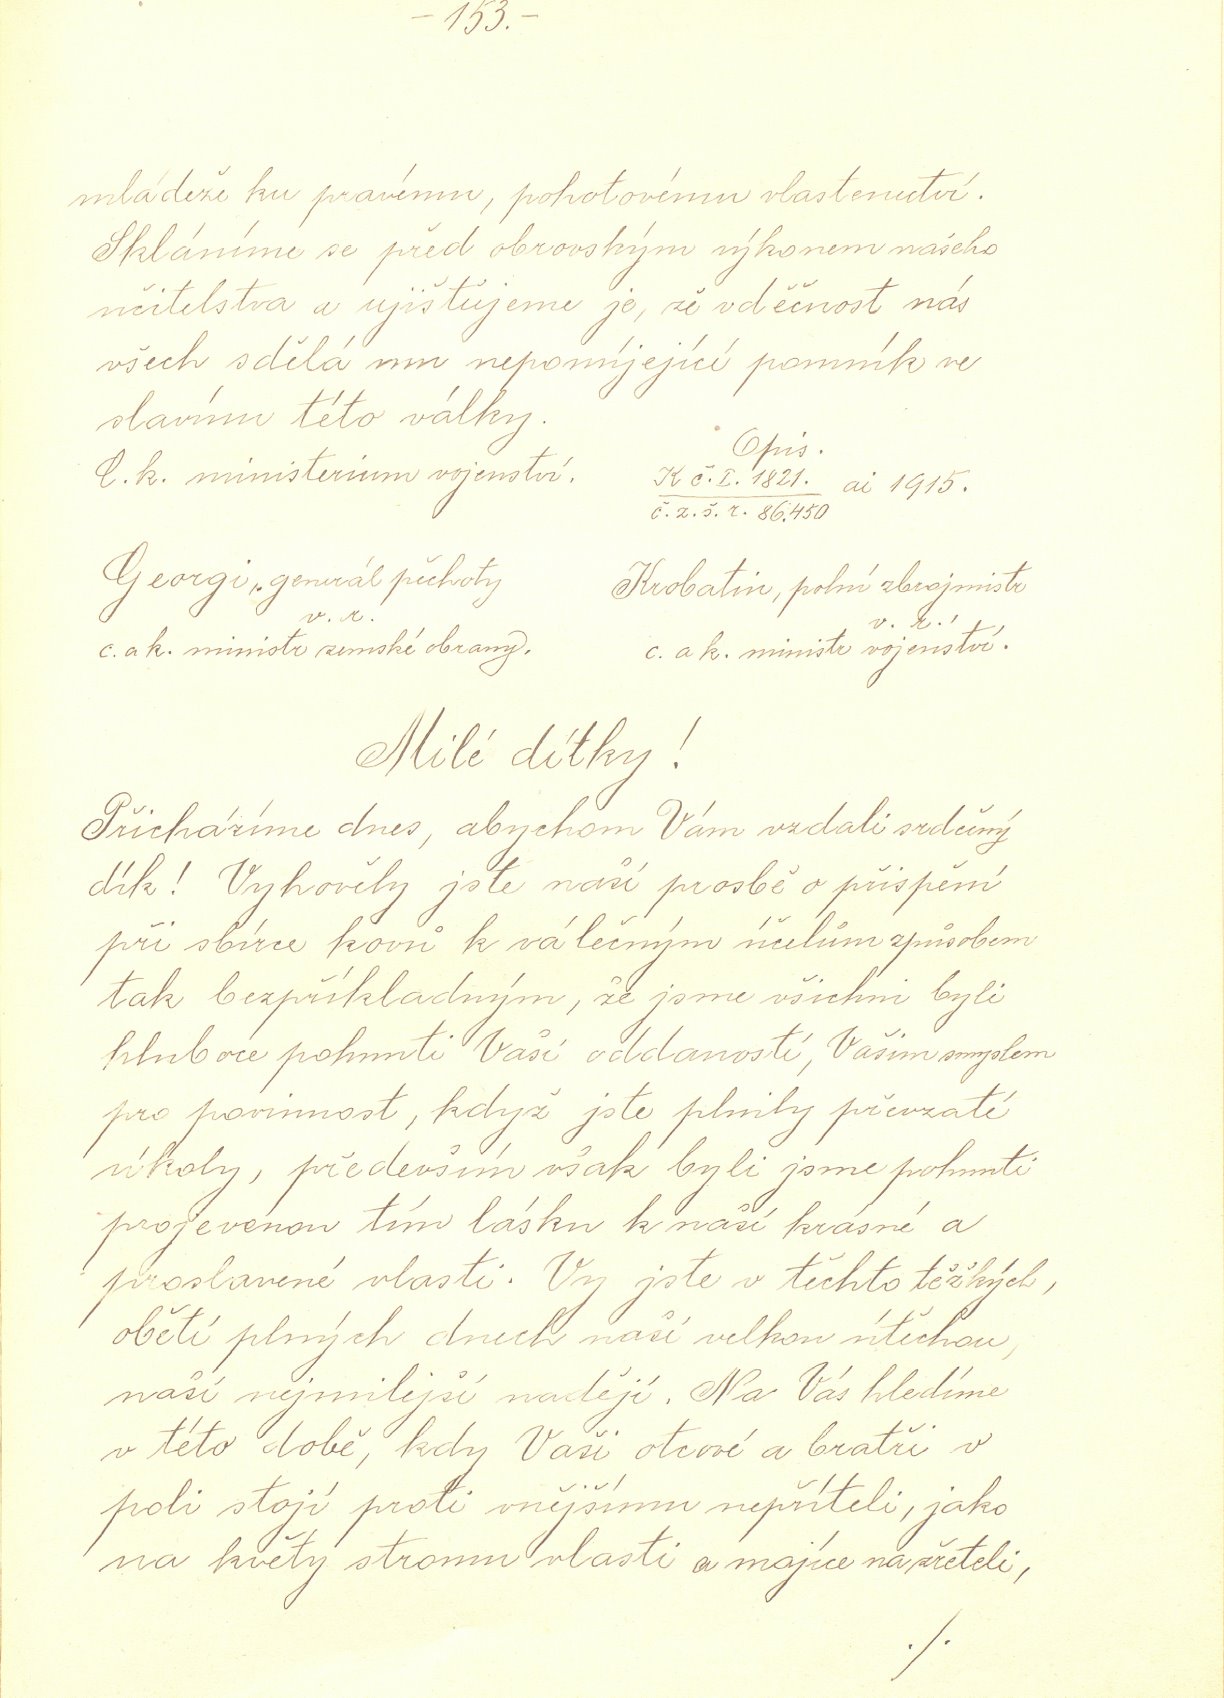 - 153. -
mládeže ku pravému, pohotovému vlastenectví.
Skláníme se před obrovským výkonem našeho
učitelstva a ujišťujeme je, že vděčnost nás
všech sdělá mu nepomíjející pomník ve
slavínu této války.
C. k. ministerium vojenství.
Opis.
K č. I. 1821.
ai 1915.
č. z. š. r. 86.450
Georgi, generál pěchoty
v. r.
c. a k. ministr zemské obrany.
Krobatin, polní zbrojmistr
v. r.
c. a k. ministr vojenství.
Milé dítky!
Přicházíme dnes, abychom Vám vzdali srdečný
dík! Vyhověly jste naší prosbě o přispění
při sbírce kovů k válečným účelům způsobem
tak bezpříkladným, že jsme všichni byli
hluboce pohnuti Vaší oddaností, Vašim smyslem
pro povinnost, když jste plnily převzaté
úkoly, především však byli jsme pohnuti
projevenou tím lásku k naší krásné a
proslavené vlasti. Vy jste v těchto těžkých,
obětí plných dnech naší velkou útěchou,
naší nejmilejší nadějí. Na Vás hledíme
v této době, kdy Vaši otcové a bratři v
poli stojí proti vnějšímu nepříteli, jako
na květy stromu vlasti a majíce na zřeteli,
./.